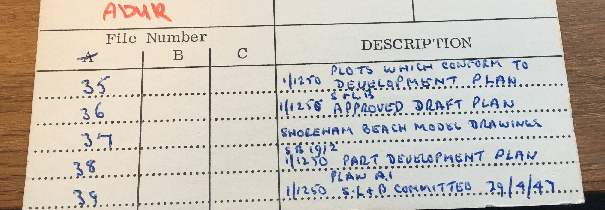 ADUR
File Number DESCRIPTION
A B C
PLOTS WHICH CONFORM TO
35 1/1250 DEVELOPMENT PLAN
S+L B
36 1/1250 APPROVED DRAFT PLAN
37 SHOREHAM BEACH MODEL DRAWINGS
SB 19/2
38 1/1250 PART DEVELOPMENT PLAN
PLAN A.1
39 1/1250 S.L+B COMMITTED 29/4/47